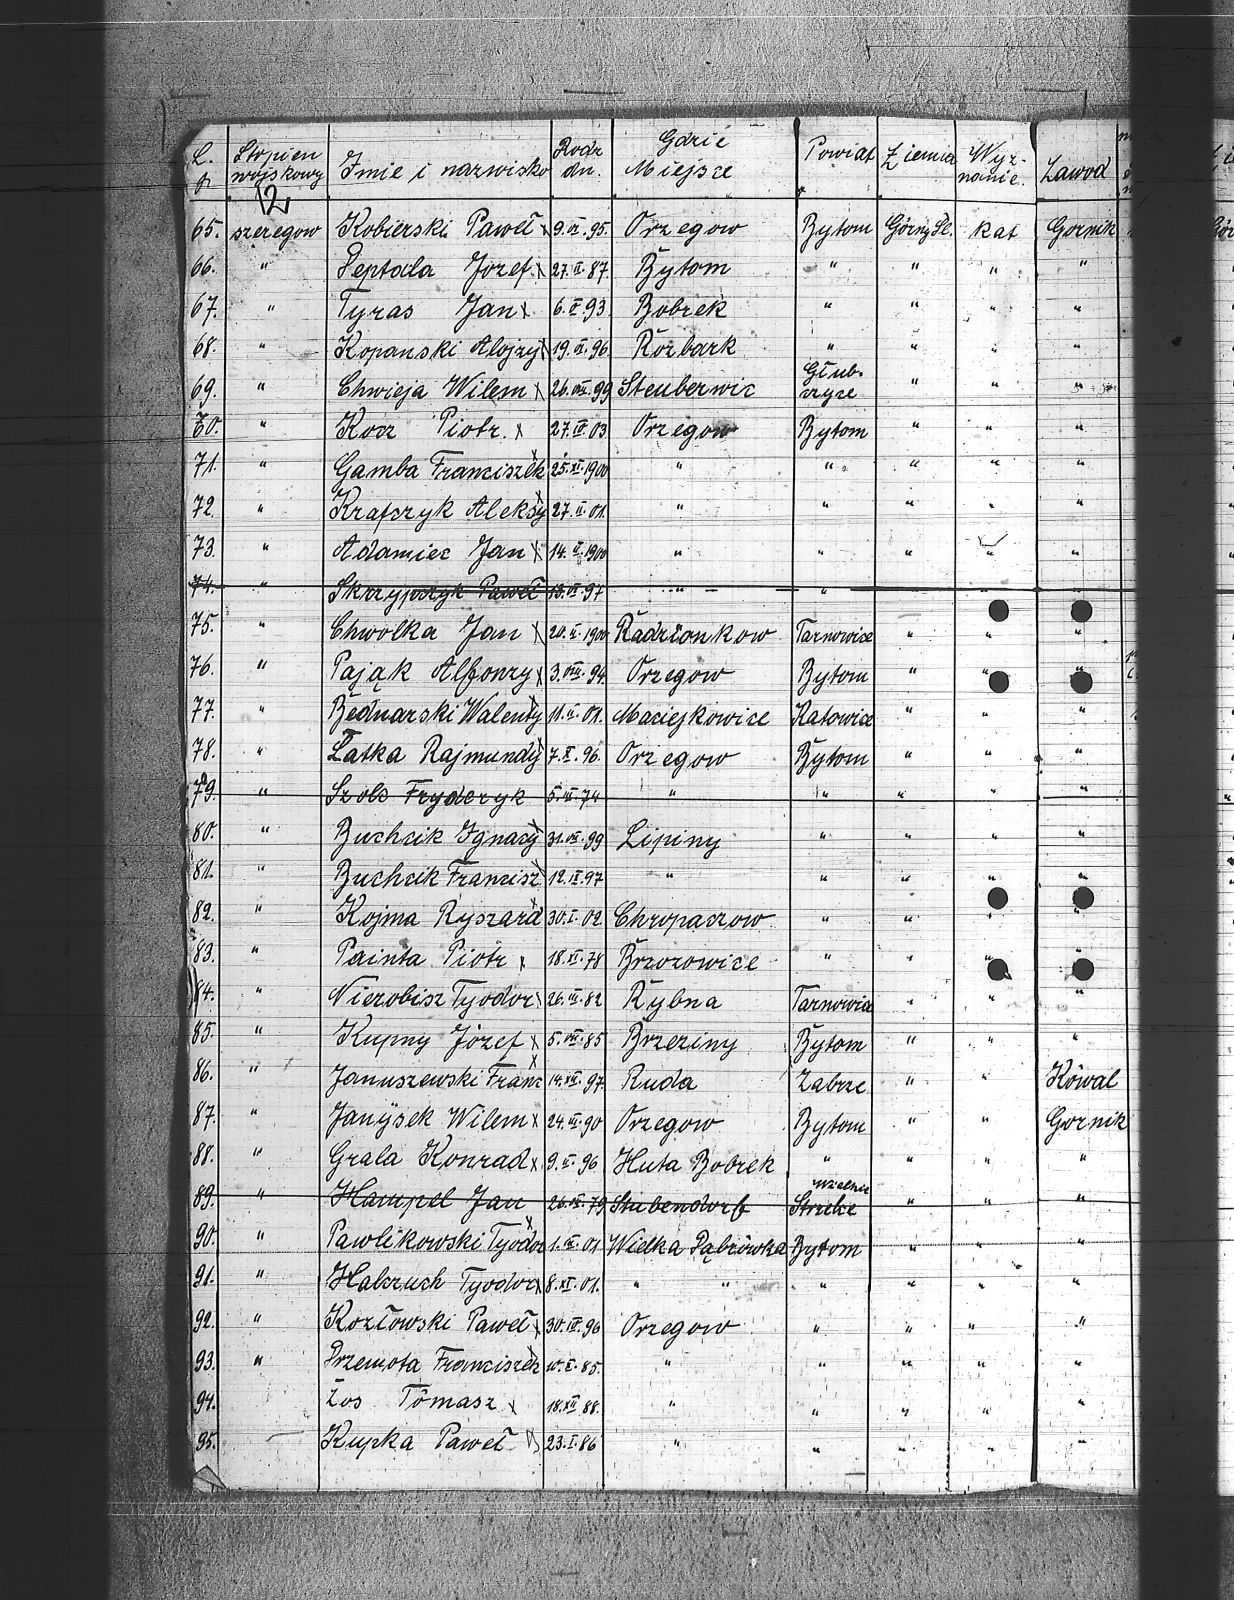 L. p. Stopien wojskowy Imie i nazwisko Rodz dn. Gdzie Miejsce Powiat Ziemia Wyznanie. Zawod
12
65. szeregow Kobierski Paweł x 9.VI.95. Orzegow Bytom Górny Śl. kat Gornik
66. " Peptala Józef. x 27.II.87. Bytom " " " "
67. " Tyras Jan x 6.V.93 Bobrek " " " "
68. " Kopanski Alojzy x 19.VI.96. Rozbark " " " "
69. " Chwieja Wilem x 26.VIII.99 Steuberwic Głubczyce " " "
70. " Kocz Piotr. x 27.IV.03 Orzegow Bytom " " "
71. " Gamba Franciszek x 25.XI.1900 " " " " "
72. " Krafczyk Aleksy x 27.II.01. " " " " "
73. " Adamiec Jan x 14.V.1900 " " " " "
74. " Skrzypczyk Paweł 13.VI.97 " "
75. " Chwolka Jan x 20.V.1900 Radzionkow Tarnowice " "
76. " Pająk Alfonzy x 3.VIII.94. Orzegow Bytom " " "
77. " Bednarski Walenty x 11.II.01. Maciejkowice Katowice " " "
78. " Łatka Rajmundy x 7.X.96. Orzegow Bytom " " "
79. " Szolc Fryderyk 5.III.74 " " " "
80. " Buchcik Ignacy x 31.VII.99 Lipiny " " " "
81. " Buchcik Francisz x 12.IX.97 " " " " "
82. " Kojma Ryszard x 30.I.02. Chropaczow " "
83. " Painta Piotr x 18.XI.78 Brzozowice " " "
84. " Nierobisz Tyodor x 26.III.82 Rybna Tarnowice " " "
85. " Kupny Józef x 5.VIII.85 Brzeziny Bytom " " "
86. " Januszewski Franc x 14.XII.97. Ruda Zabrze " " Kowal
87. " Janysek Wilem x 24.III.90 Orzegow Bytom " " Gornik
88. " Grala Konrad x 9.II.96 Huta Bobrek " " " "
89. " Hampel Jan 26.VI.79 Stubendorf Strzelce " " "
90. " Pawlikowski Tyodor x 1.IX.01 Wielka Dąbrówka Bytom " " "
91. " Halczuch Tyodor x 8.XI.01. " " " " " "
92. " Kozłowski Paweł x 30.IV.96 Orzegow " " " "
93. " Przemota Franciszek x 10.X.85. " " " " "
94. Zos Tomasz x 18.XII.88. " " " " "
95. Kupka Paweł 23.I.86 " " " " "